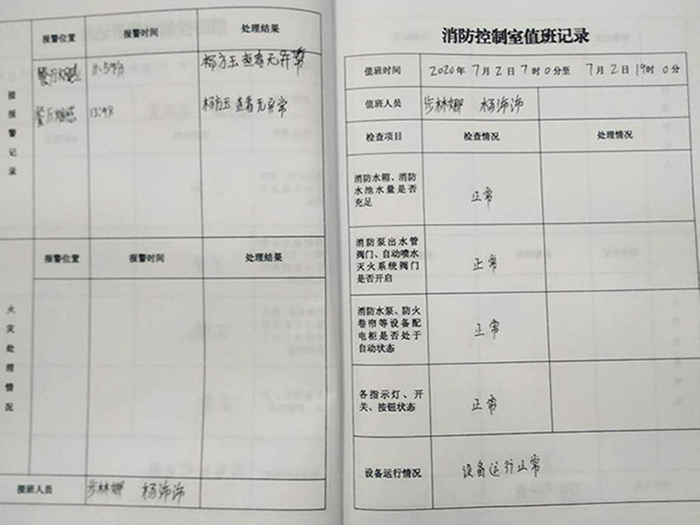 报警位置 报警时间 处理结果
餐厅烟感 杨方玉 查看无异常
餐厅烟感 13:48 杨方玉 查看无异常
接报警记录
报警位置 报警时间 处理结果
火灾处理情况
接班人员 步林娜 杨沛沛
消防控制室值班记录
值班时间 2020 年 7 月 2 日 7 时 0 分至 7 月 2 日 19 时 0 分
值班人员 步林娜 杨沛沛
检查项目 检查情况 处理情况
消防水箱、消防
水池水量是否
充足
正常
消防泵出水管
阀门、自动喷水
灭火系统阀门
是否开启
正常
消防水泵、防火
卷帘等设备配
电柜是否处于
自动状态
正常
各指示灯、开
关、按钮状态
正常
设备运行情况 设备运行正常